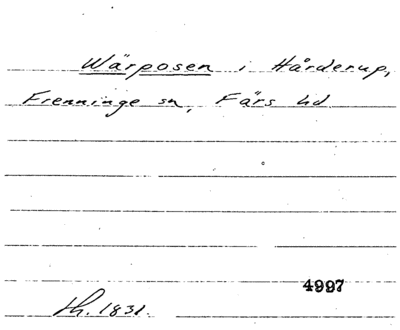 Wärposen i Hårderup,
Frenninge sn, Färs hd
4997
th. 1831.